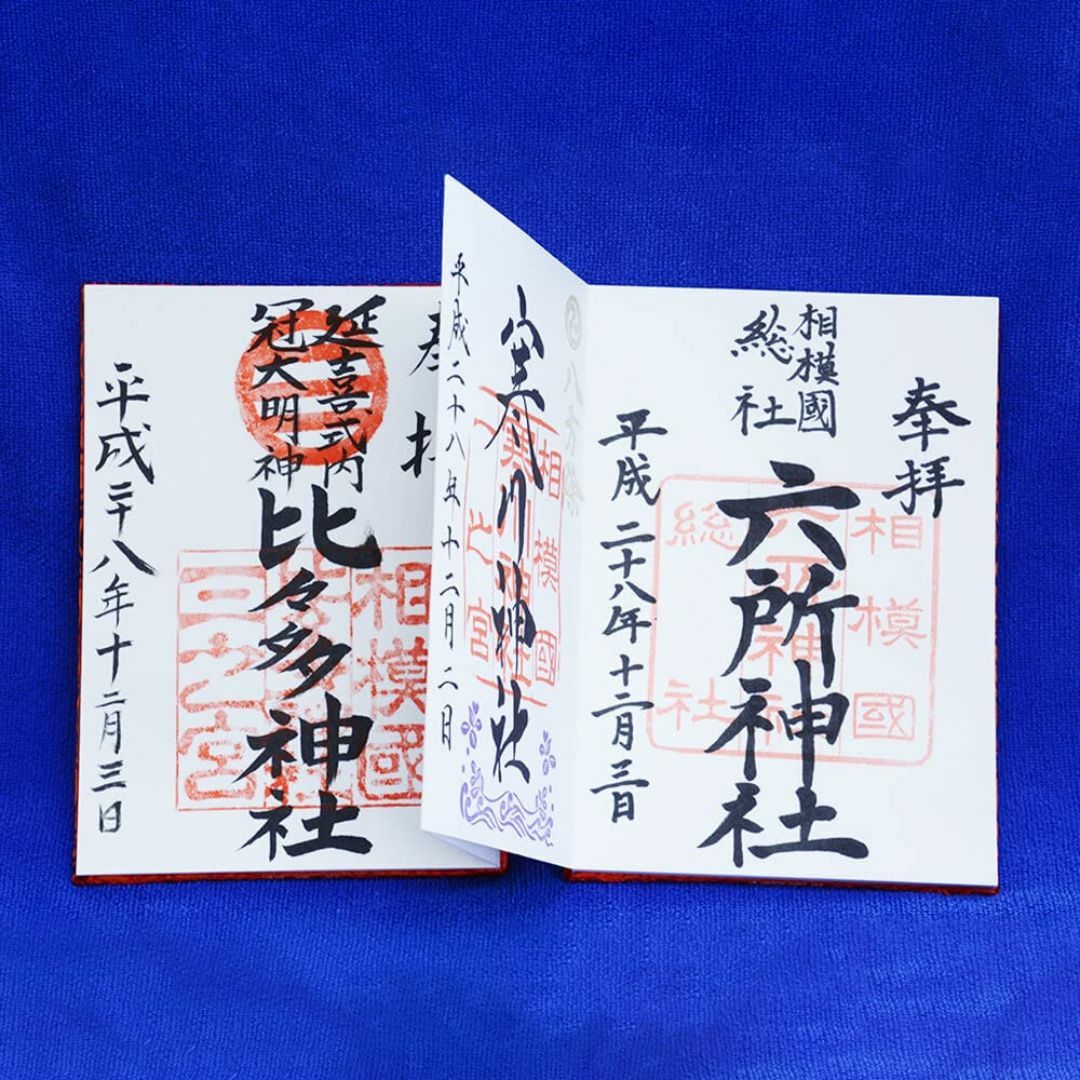 奉拝
相模國
総社
六所神社
平成二十八年十二月三日
相模國
総社
八方除
寒川神社
平成二十八年十二月二日
相模國
一之宮
奉拝
延喜式内
冠大明神
比々多神社
平成二十八年十二月三日
相模國
三之宮